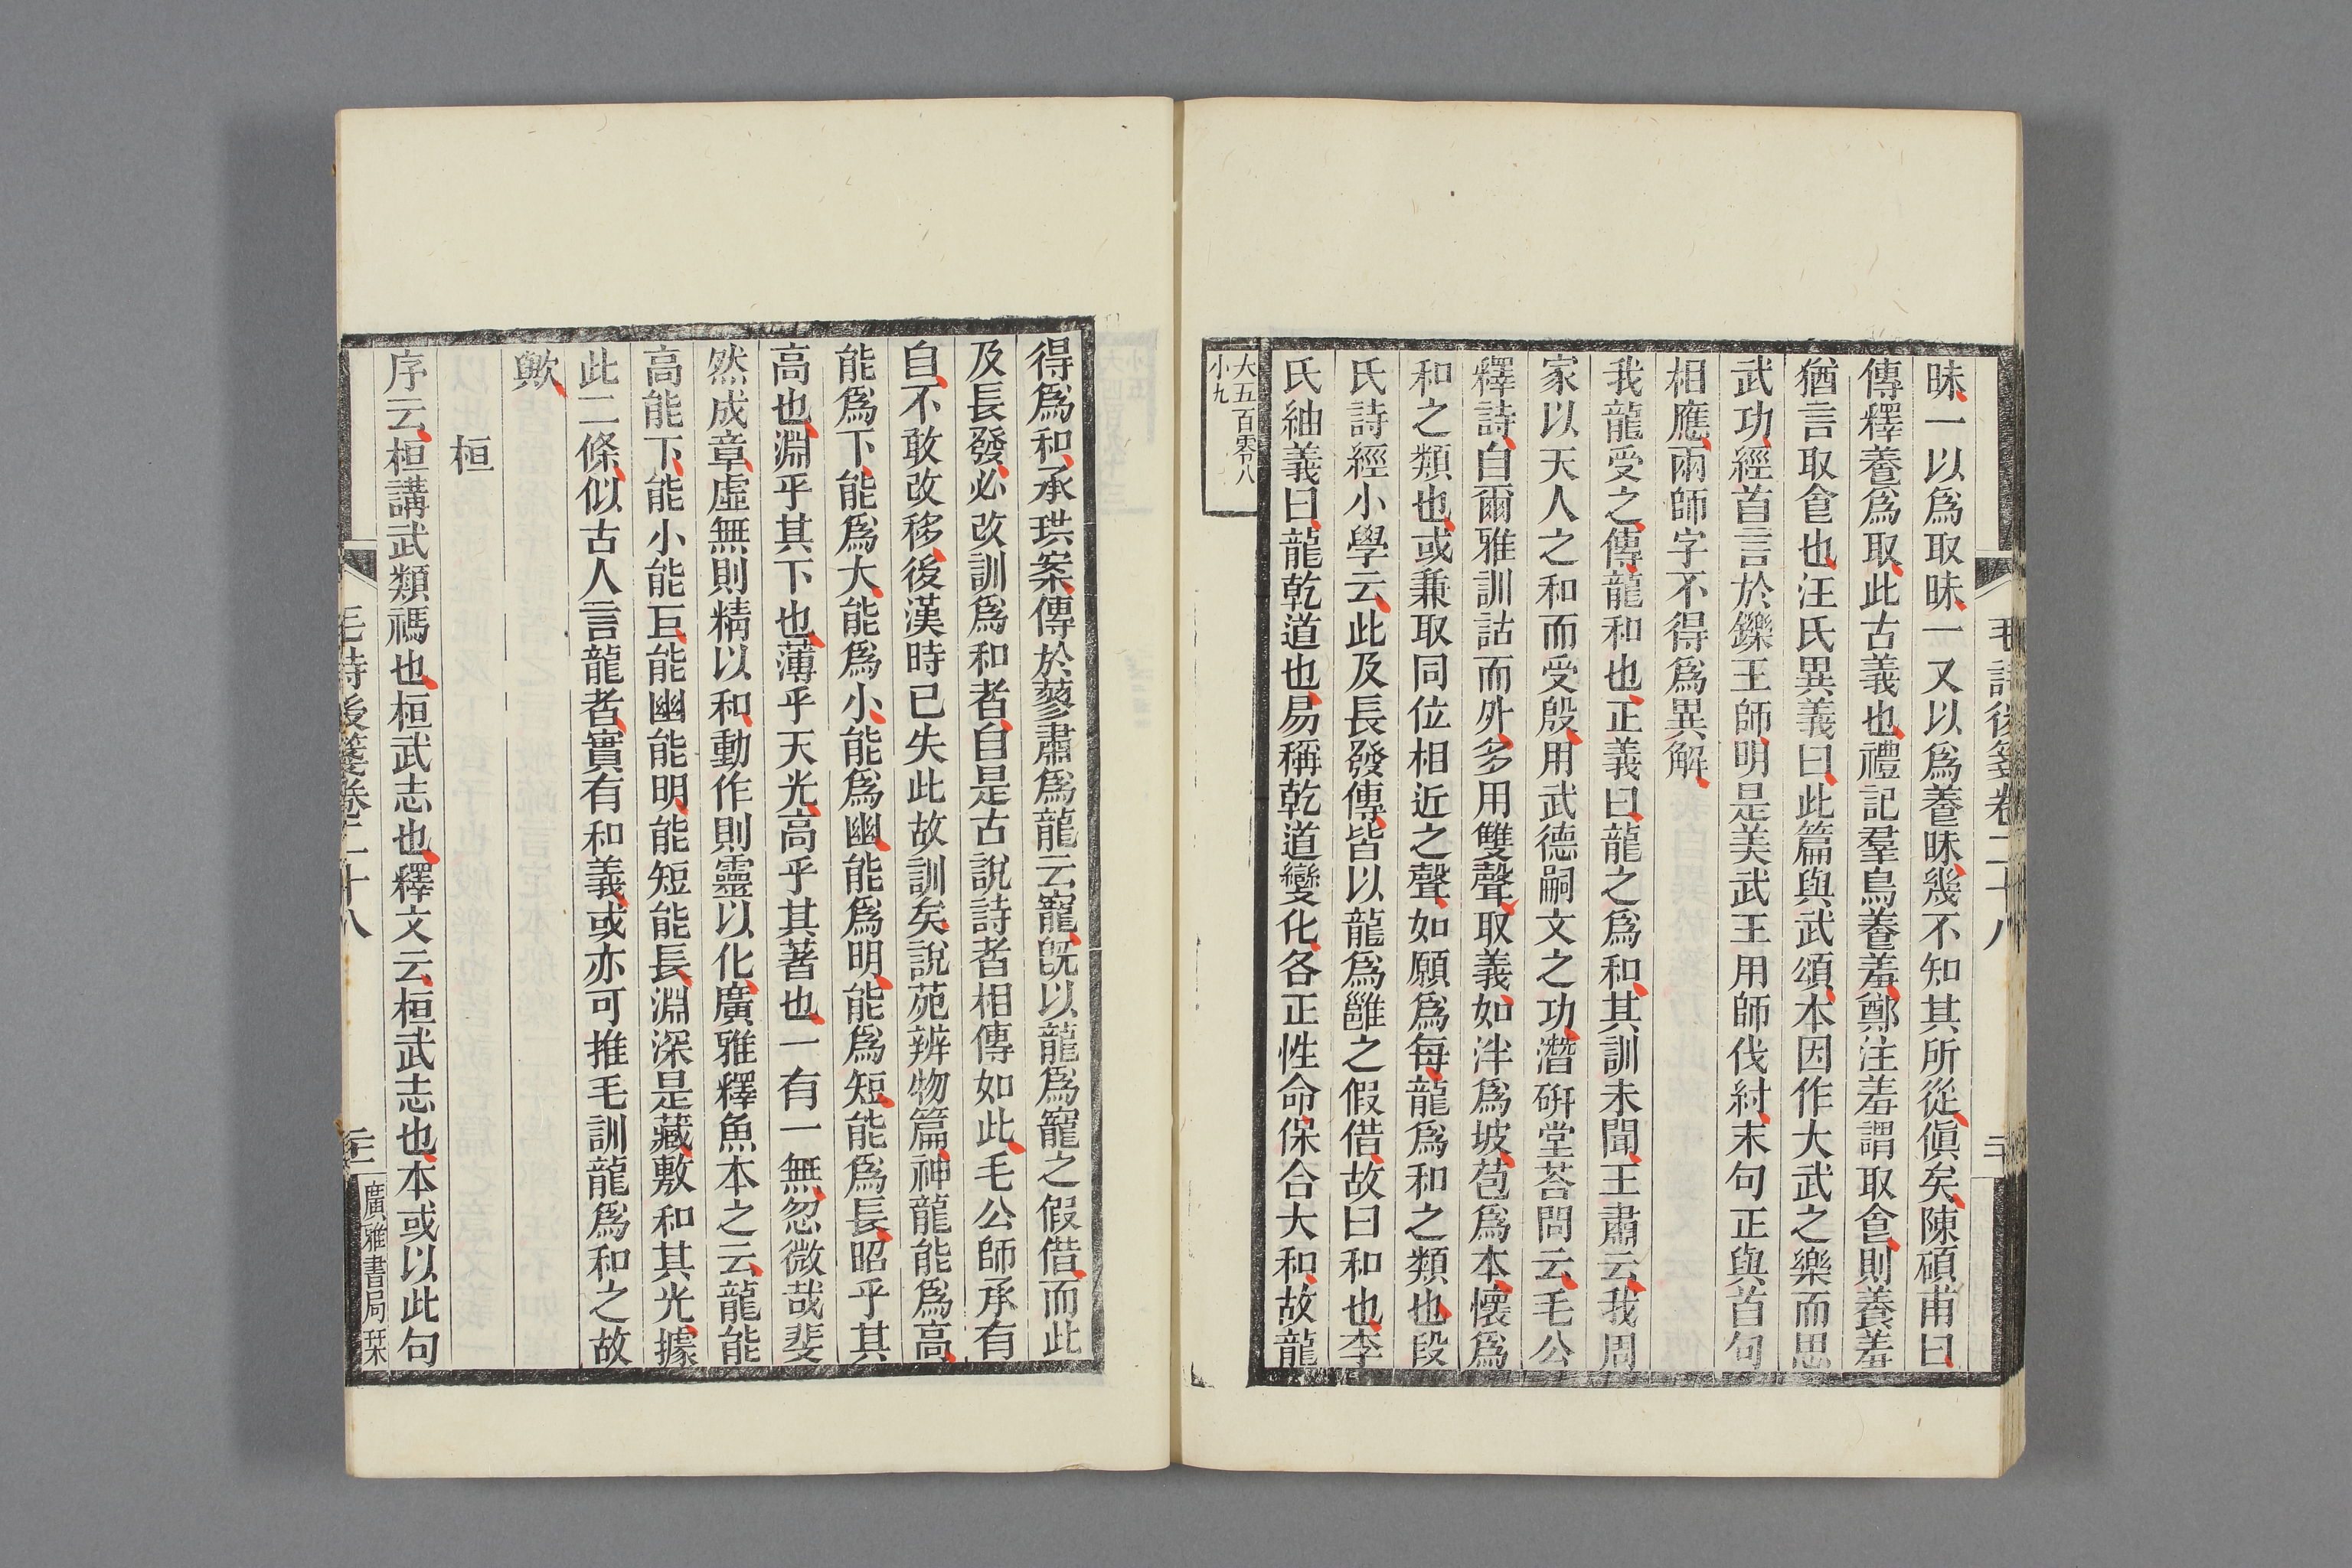 毛詩後箋卷二十八
昧一以爲取昧一又以爲養昧幾不知其所從傎矣陳碩甫曰
傳釋養爲取此古義也禮記羣鳥養羞鄭注羞謂取食則養羞
猶言取食也汪氏異義曰此篇與武頌本因作大武之樂而思
武功經首言於鑠王師明是美武王用師伐紂末句正與首句
相應兩師字不得爲異解
我龍受之傳龍和也正義曰龍之爲和其訓未聞王肅云我周
家以天人之和而受殷用武德嗣文之功潛硏堂荅問云毛公
釋詩自爾雅訓詁而外多用雙聲取義如泮爲坡苞爲本懷爲
和之類也或兼取同位相近之聲如願爲每龍爲和之類也段
氏詩經小學云此及長發傳皆以龍爲雝之假借故曰和也李
氏紬義曰龍乾道也易稱乾道變化各正性命保合大和故龍
大五百零八
小九
得爲和承珙案傳於蓼肅爲龍云寵旣以龍爲寵之假借而此
及長發必改訓爲和者自是古說詩者相傳如此毛公師承有
自不敢改移後漢時已失此故訓矣說苑辨物篇神龍能爲高
能爲下能爲大能爲小能爲幽能爲明能爲短能爲長昭乎其
高也淵乎其下也薄乎天光高乎其著也一有一無忽微哉斐
然成章虛無則精以和動作則靈以化廣雅釋魚本之云龍能
高能下能小能巨能幽能明能短能長淵深是藏敷和其光據
此二條似古人言龍者實有和義或亦可推毛訓龍爲和之故
歟
桓
序云桓講武類禡也桓武志也釋文云桓武志也本或以此句
毛詩後箋卷二十八
廣雅書局栞